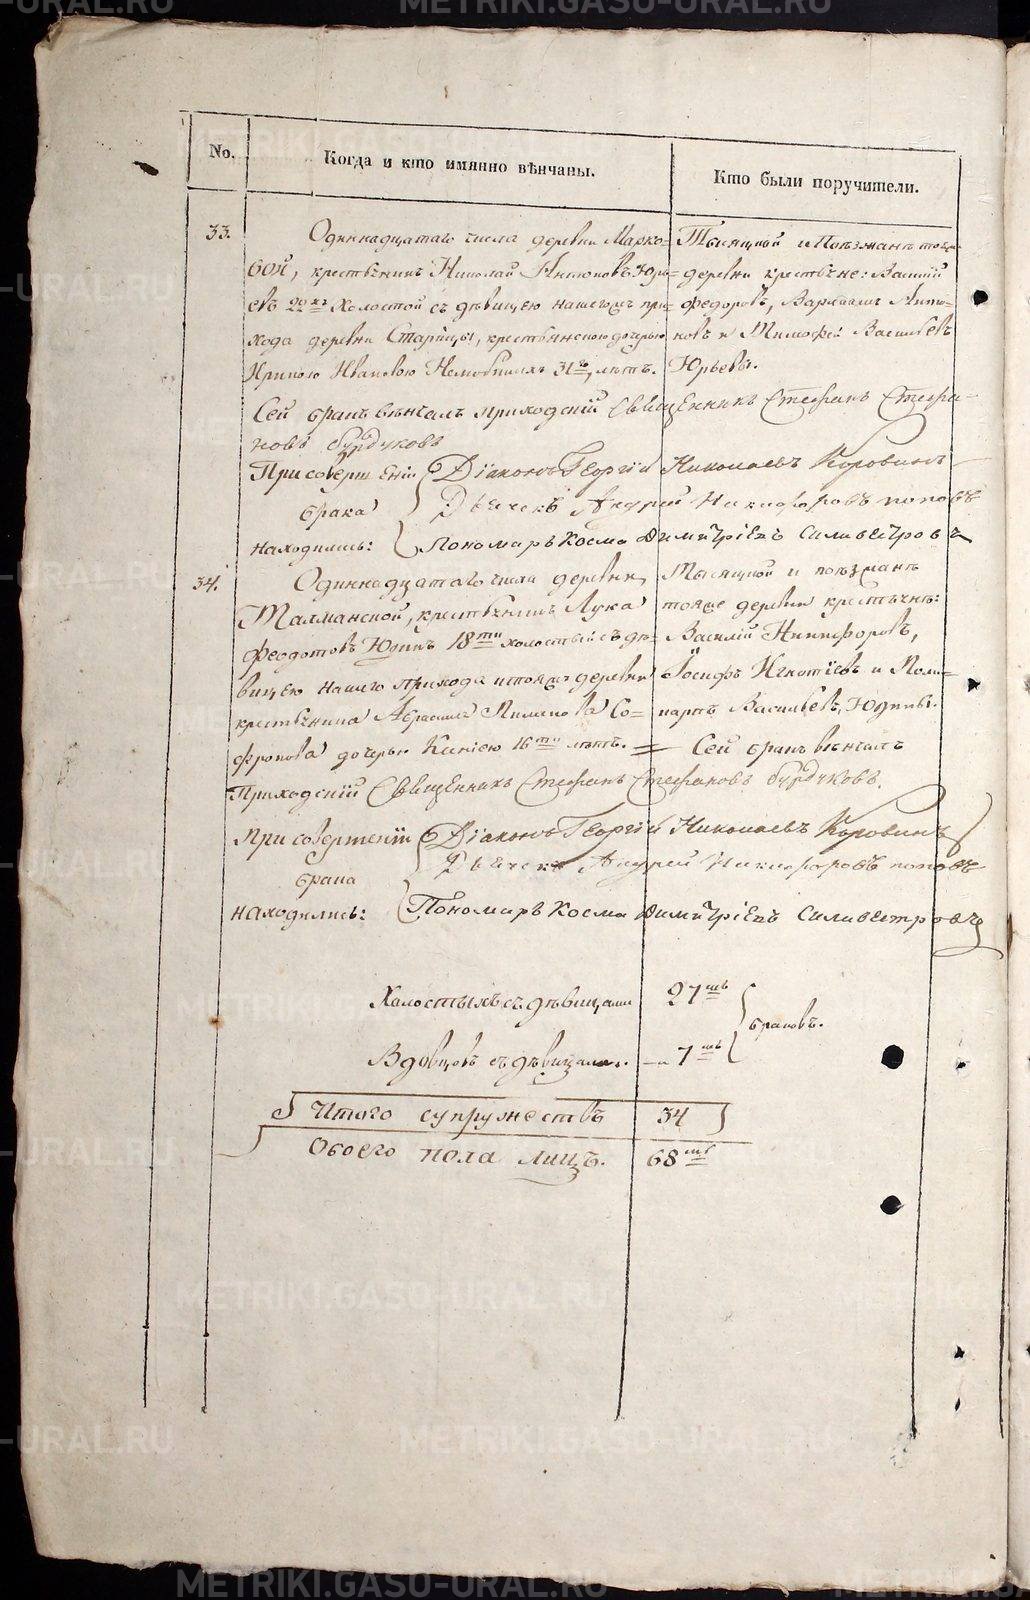 No. Когда и кто имянно вѣнчаны. Кто были поручители.
33. Одиннадцатаго числа деревни Марко=
вой, крестьянинъ Николай Антоновъ Юрь=
евъ 22хъ холостой съ дѣвицею нашегожъ при=
хода деревни Старицы, крестьянскою дочерью
Ириною Ивановою 31го лѣтъ.
Тысяцкой и поѣзжане тояже
деревни крестьяне: Василій
Федоровъ, Варлаамъ Анто=
новъ и Тимофей Васильевъ
Юрьевы.
Сей бракъ вѣнчалъ приходскій Священникъ Стефанъ Стефа=
новъ Бурдуковъ
При совершеніи Діаконъ Георгій Николаевъ Коровинъ
брака Дьячекъ Андрей Никифоровъ Поповъ
находились: Пономарь Косма Димитріевъ Силивестровъ
34. Одиннадцатаго числа деревни
Талманской, крестьянинъ Лука
Феодотовъ Юдинъ 18ти холостый съ дѣ=
вицею нашего прихода и тояжъ деревни
крестьянина Пименова Со=
фронова дочерью 16ти лѣтъ.
Тысяцкой и поѣзжане
тояже деревни крестьяне:
Василій Никифоровъ,
Іосифъ Игнатіевъ и Поли=
карпъ Васильевъ, Юдины.
Сей бракъ вѣнчалъ
Приходскій Священникъ Стефанъ Стефановъ Бурдуковъ.
При совершеніи Діаконъ Георгій Николаевъ Коровинъ
брака Дьячекъ Андрей Никифоровъ Поповъ
находились: Пономарь Косма Димитріевъ Силивестровъ
Холостыхъ съ дѣвицами 27мь
браковъ.
Вдовцовъ съ дѣвицами. 7мь
Итого супружествъ 34
Обоего пола лицъ. 68мь
METRIKI.GASO-URAL.RU